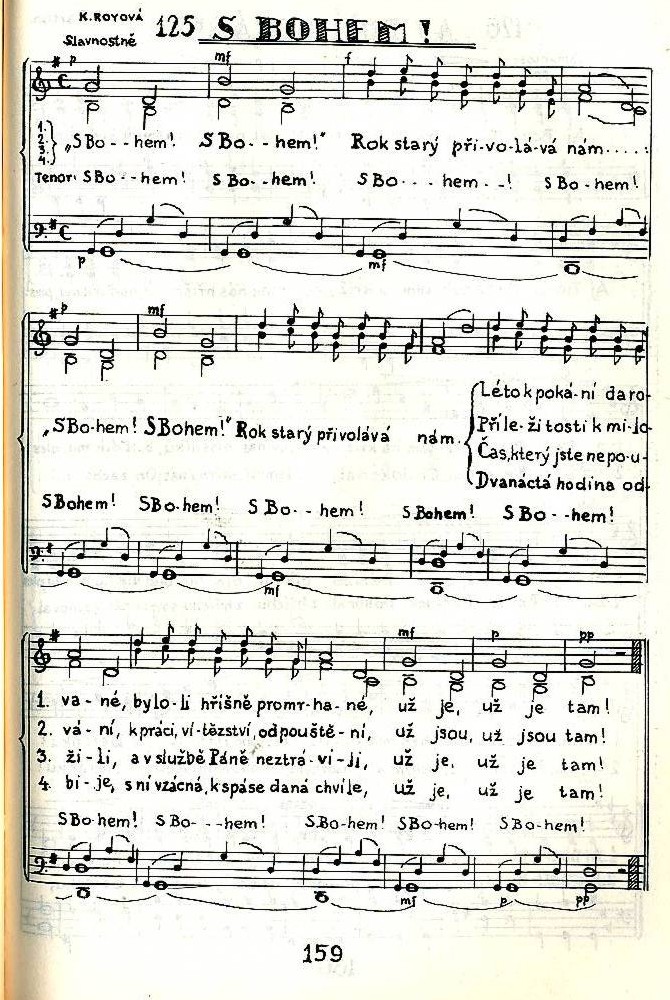 K. ROYOVÁ
125 S BOHEM!
Slavnostně
p mf f
1. 2. 3. 4. } „S Bo - - hem! S Bo - - hem!" Rok starý při-vo-lá-vá nám . . . . :
Tenor: S Bo - - hem! S Bo - - hem! S Bo - - - hem - - ! S Bo - hem!
p mf
p mf
„S Bo-hem! S Bohem!" Rok starý přivolává nám. { Léto k poká-ní daro-
Příle-ži tosti k mi-lo-
Čas, který jste nepo-u-
Dvanáctá hodina od-
S Bohem! S Bo-hem! S Bo - - hem! S Bohem! S Bo - - hem!
mf
mf p pp
1. va - né, bylo-li hříšně promr-ha- né, už je, už je tam!
2. vá - ní, k práci, ví-tězství, odpouště- ní, už jsou, už jsou tam!
3. ži - li, a v službě Páně neztrá-vi-li, už je, už je tam!
4. bi - je, s ní vzácná, k spáse daná chvíle, už je, už je tam!
S Bo-hem! S Bo - - - hem! S Bo-hem! S Bo-hem! S Bo-hem!
mf p pp
159